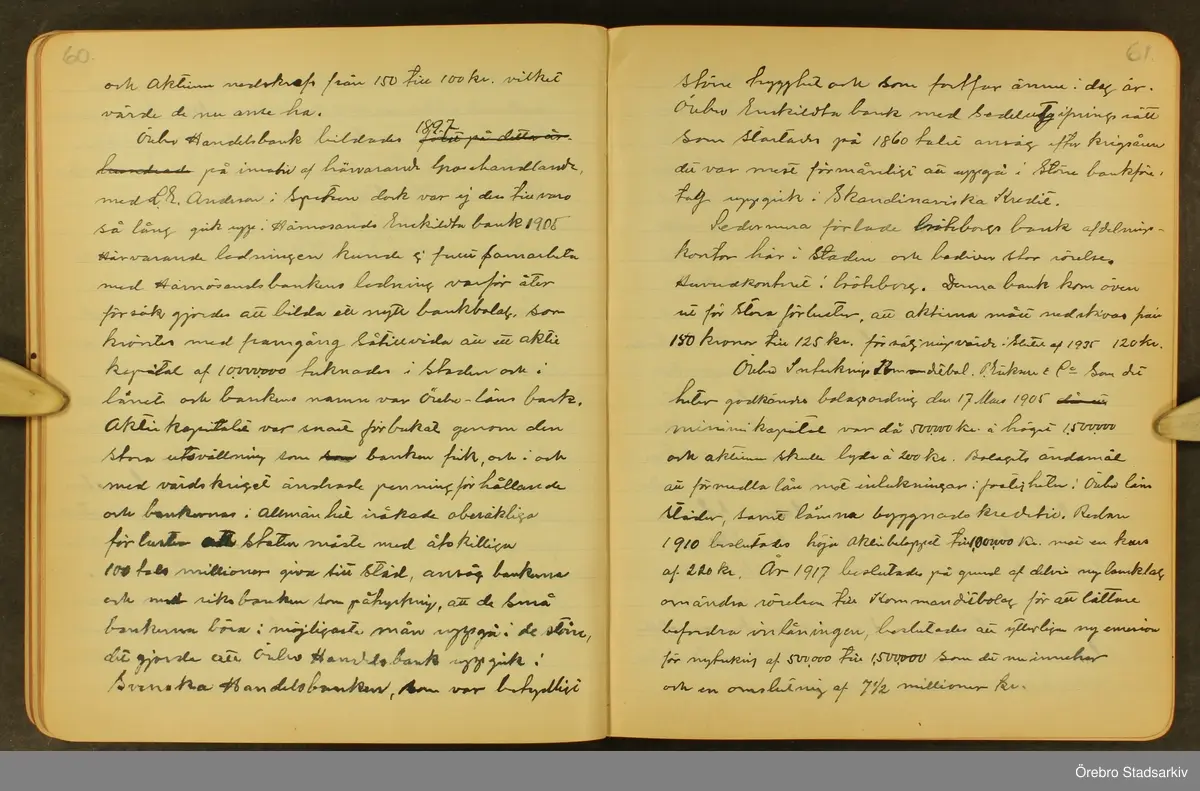 60.
och Aktierna nedskrefs från 150 till 100 kr. vilket
värde de nu anse ha.
Örebro Handelsbank bildades 1897
på initiativ af härvarande Grosshandlande,
med L.E. Anderson i Spetsen dock var ej dess tillvaro
så lång gick upp i Härnosands Enskildta bank 1905
Härvarande ledningen kunde ej samarbeta
med Härnösandsbankens ledning varför åter
försök gjordes att bilda ett nytt bankbolag, som
kröntes med framgång såtillvida att ett aktie
kapital af 10,000,000 tecknades i staden och i
länet och bankens namn var Örebro-läns bank.
Aktiekapitalet var snart förbrukat genom den
stora utsvällning som banken fick, och i och
med världskriget ändrade penningförhållande
och bankernas i Allmänhet iråkade oberäkliga
förluster att Staten måste med åtskilliga
100 tals millioner giva till stöd, ansåg bankerna
och med riksbanken som påtryckning, att de små
bankerna böra i möjligaste mån uppgå i de större,
det gjorde att Örebro Handelsbank uppgick i
Svenska Handelsbanken, som var betydligt
61.
större trygghet och som fortfar ännu i dag är.
Örebro Enskildta bank med Sedelutgifningsrätt
som startades på 1860 talet ansåg efter krigsåren
det var mest förmånligt att uppgå i större bankföre-
tag uppgick i Skandinaviska Kredit.
Sedermera förlade Göteborgs bank afdelnings-
kontor här i Staden och bedriver stor rörelse,
Huvudkontoret i Göteborg. Denna bank kom även
ut för stora förluster, att aktierna måste nedskrivas från
150 kronor till 125 kr. försäljningsvärde i slutet af 1935 120 kr.
Örebro Intecknings Komanditbol. P. Erikson & Co som det
heter godkändes bolagsordning den 17 Mars 1905
minimikapital var då 500,000 kr. å högst 1,500,000
och aktierna skulle lyda å 200 kr. Bolagets ändamål
att förmedla lån mot inteckningar i fastigheter i Örebro län
städer, samt lämna byggnadskreditiv. Redan
1910 beslutades höja Aktiebeloppet till 1,000,000 kr. mot en kurs
af 220 kr. År 1917 beslutades på grund af delvis ny banklag
omändra rörelsen till Kommanditbolag för att lättare
befordra inlåningen, beslutades att ytterligare ny emission
för nyteckning af 500,000 till 1,500,000 som det nu innehar
och en omslutning af 7 1/2 millioner kr.
Örebro Stadsarkiv